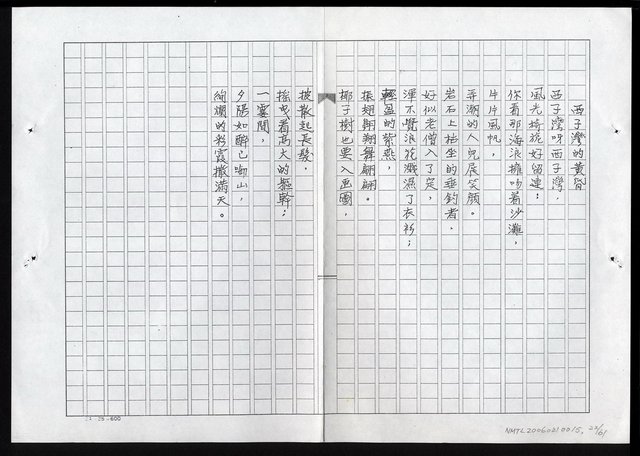 西子灣的黃昏
西子灣呀西子灣，
風光綺旎好留連；
你看那海浪擁吻着沙灘，
片片風帆，
弄潮的人兒展笑顏。
岩石上枯坐的垂釣者，
好似老僧入了定，
渾不覺浪花濺濕了衣衫；
輕盈的紫燕，
振翅翱翔舞翩翩。
椰子樹也要入画圖，
披散起長髮，
搖曳着高大的軀幹；
一霎間，
夕陽如醉已吻山，
絢爛的彩霞撒滿天。
25-600
NMTL20060210015, 22/61